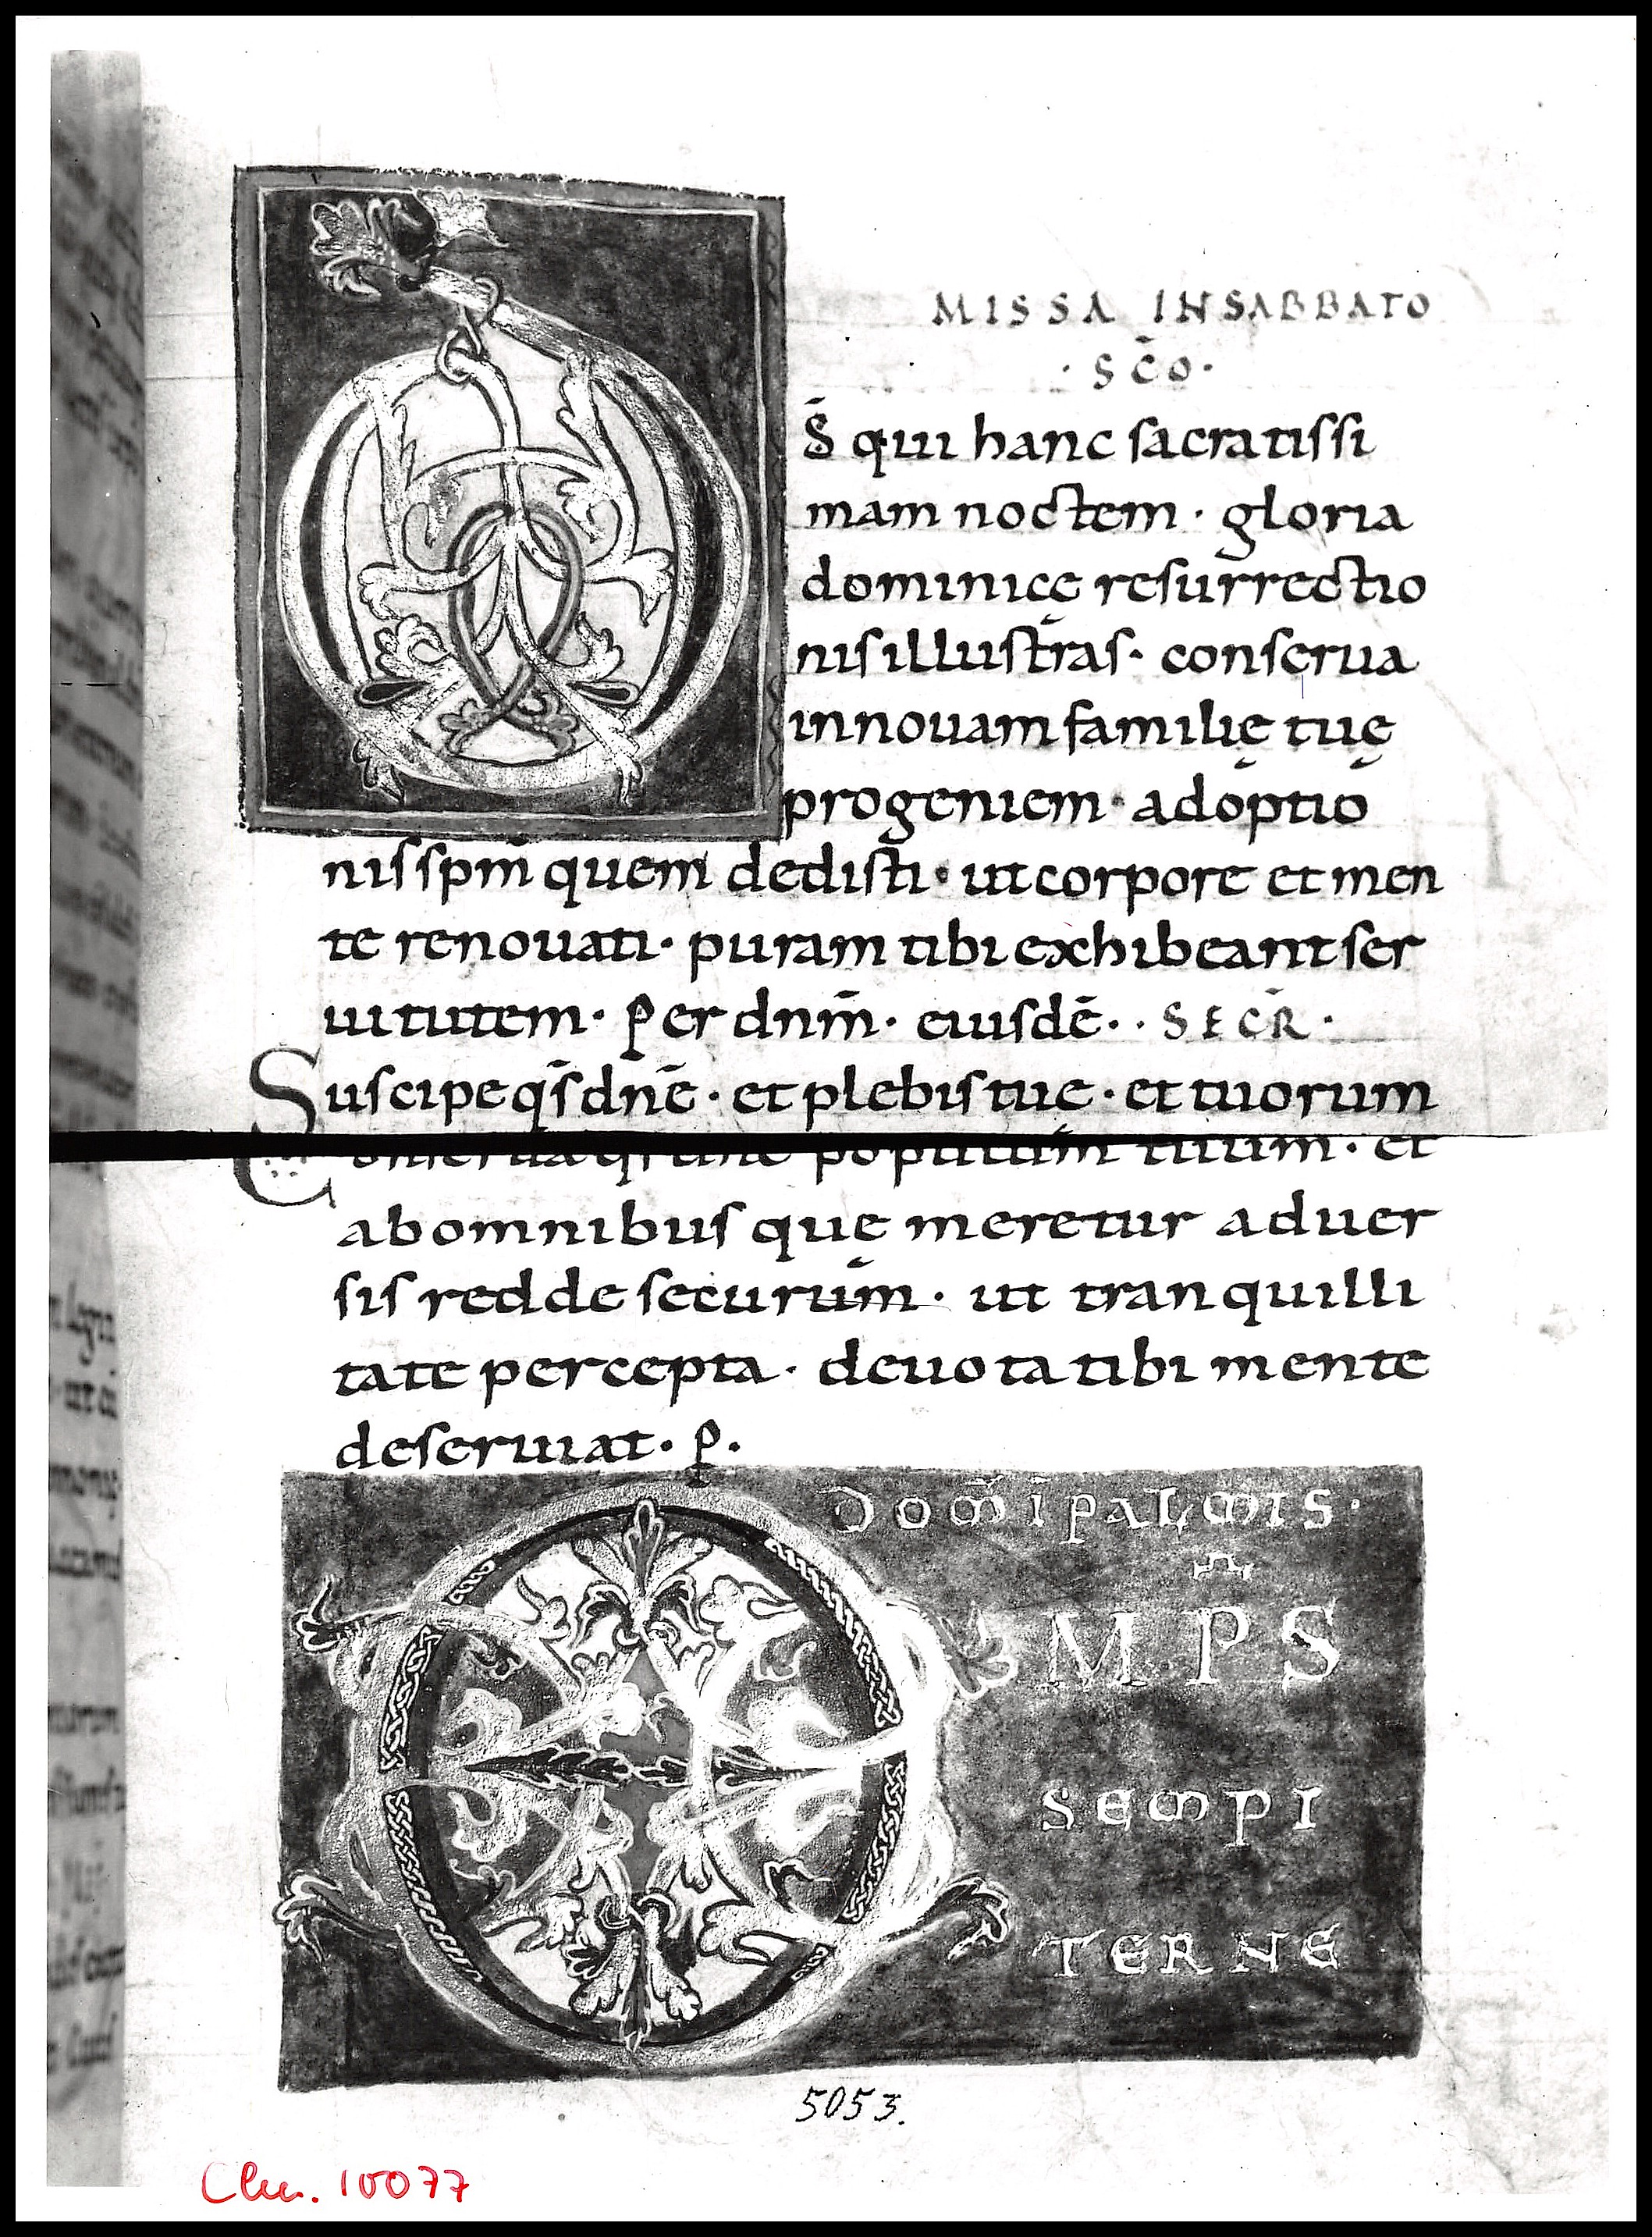 MISSA INSABBATO
· SC̄O ·
D S̄ qui hanc sacratissi
mam noctem · gloria
dominicę resurrectio
nis illustras · conserua
in nouam familię tuę
progeniem · adoptio
nis sp̄m quem dedisti · ut corpore et men
te renouati · puram tibi exhibeant ser
uitutem · Per dn̄m · eiusdē · · SECR̄ ·
Suscipe q̄s dn̄e · et plebis tue · et tuorum
Conserua q̄s dn̄e populum tuum · et
ab omnibus quę meretur aduer
sis redde securum · ut tranquilli
tate percepta · deuota tibi mente
deseruiat · P̲ ·
DOM̄ I PALMIS ·
O M P S
SEMPI
TERNE
5053.
Clm. 10077